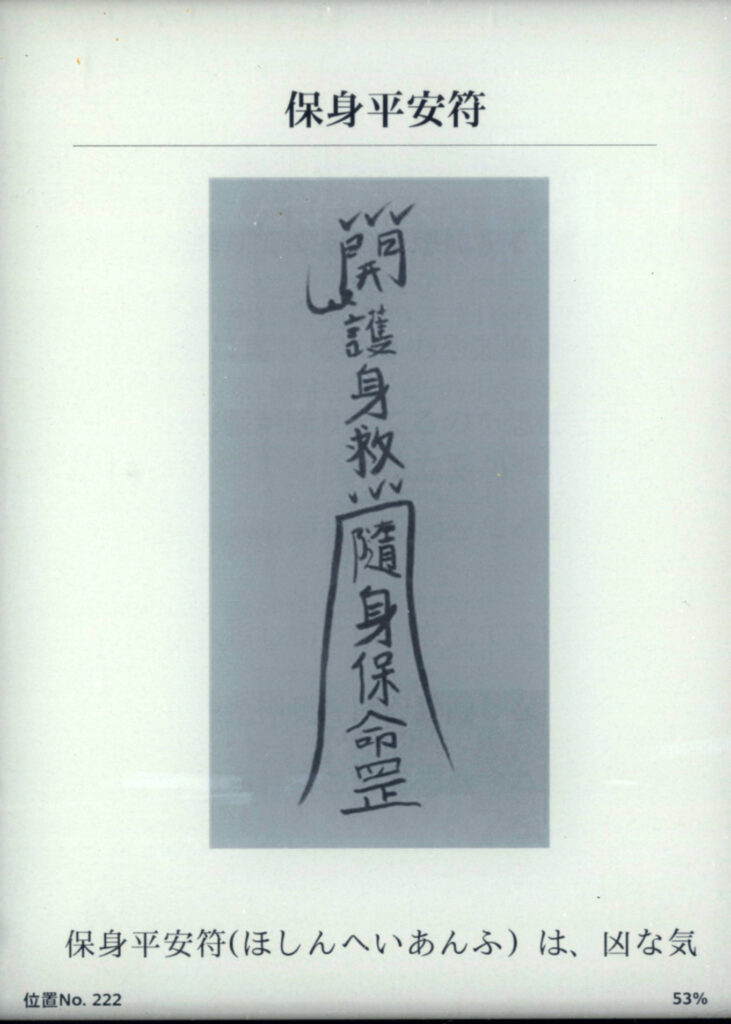 保身平安符
開
護
身
救
隨
身
保
命
罡
保身平安符(ほしんへいあんふ) は、凶な気
位置No. 222
53%